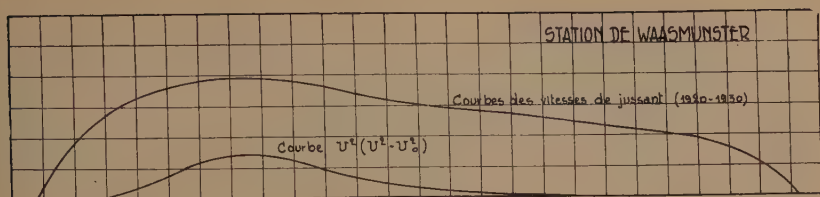 STATION DE WAASMUNSTER
Courbes des vitesses de jusant (1920-1930)
Courbe U²(U²-U₀²)